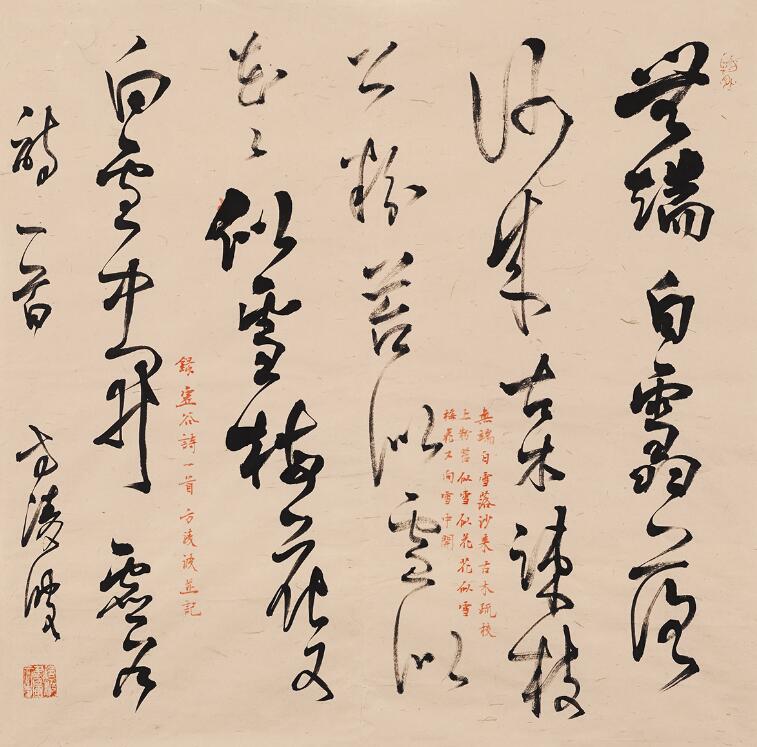 無端白雪落
沙来古木疎枝
上粉苔似雪似
花〻似雪梅花又
向雪中開虛谷
詩一首 方凌波
無端白雪落沙来古木疏枝
上粉苔似雪似花花似雪
梅花又向雪中開
錄虛谷詩一首方凌波並記